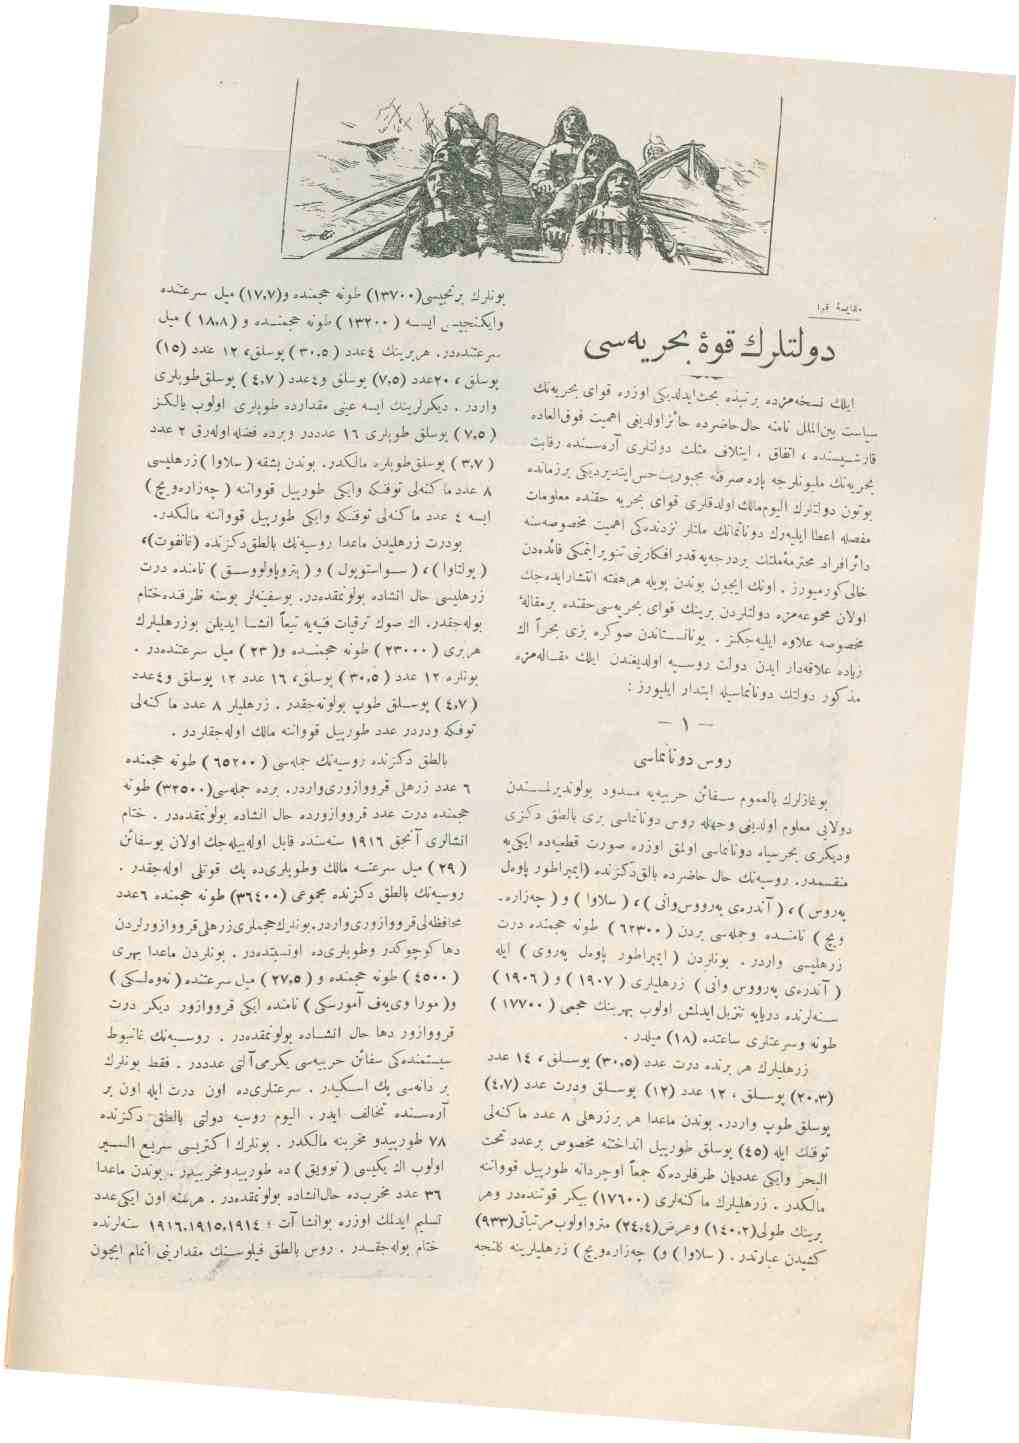 مقايسهٔ قوا
دولتلرك قوهٔ بحریه‌سی
ایلك نسخه‌مزده بر نبذه بحث ایدلدیكی اوزره قوای بحریه‌نك
سیاست بین‌الملل نامنه حال حاضرده حائز اولدیغی اهمیت فوق‌العاده
قارشیسنده ، اتفاق ، ایتلاف مثلث دولتلری آره‌سنده رقابت
بحریه‌نك ملیونلرجه پاره صرفنه مجبوریت حس ایتدیردیكی بر زمانده
بوتون دولتلرك الیوم مالك اولدقلری قوای بحریه حقنده معلومات
مفصله اعطا ایلیه‌رك دوناتمانك ملتلر نزدنده‌كی اهمیت مخصوصه‌سنه
دائر افراد محترمهٔ ملتك بر درجه‌یه قدر افكارینی تنویر ایتمكی فائده‌دن
خالی كورمیورز . اونك ایچون بوندن بویله هر هفته انتشار ایده‌جك
اولان مجموعه‌مزه دولتلردن برینك قوای بحریه‌سی حقنده بر مقالهٔ
مخصوصه علاوه ایلیه‌جكز . یونانستاندن صوكره بزی بحراً اك
زیاده علاقه‌دار ایدن دولت روسیه اولدیغندن ایلك مقاله‌مزه
مذكور دولتك دونانماسیله ابتدار ایلیورز :
— ١ —
روس دونانماسی
بوغازلرك بالعموم سفائن حربیه‌یه مسدود بولوندیرلمسندن
دولایی معلوم اولدیغی وجهله روس دونانماسی بری بالطق دكزی
ودیگری بحر سیاه دونانماسی اولمق اوزره صورت قطعیه‌ده ایكی‌یه
منقسمدر. روسیه‌نك حال حاضرده بالق دكزنده (ایمپراطور پاوه‌ل
په‌روس )، ( آندره‌ی په‌رووس وانی )، ( سلاوا ) و ( چه‌زاره‌ـ
ویچ ) نامنده وجمله‌سی بردن (٦٢٣٠٠) طونه حجمنده درت
زرهلیسی واردر. بونلردن ( ایمپراطور پاوه‌ل په‌روی ) ایله
( آندره‌ی په‌رووس وانی ) زرهلیلری (١٩٠٧ ) و ( ١٩٠٦ )
سنه‌لرنده دریایه تنزیل ایدلمش اولوب بهرینك حجمی ( ١٧٧٠٠ )
طونه وسرعتلری ساعتده (١٨) میلدر .
زرهلیلرك هر برنده درت عدد (٣٠,٥) پوسلق ، ١٤ عدد
(٢٠,٣) پوسلق ، ١٢ عدد (١٢) پوسلق ودرت عدد (٤,٧)
پوسلق طوپ واردر. بوندن ماعدا هر بر زرهلی ٨ عدد ماكنه‌لی
توفنك ایله (٤٥) پوسلق طورپیل انداختنه مخصوص بر عدد تحت
البحر وایكی عددیان طرفلرده‌كه جمعاً اوچ ردانه طورپیل قوواننه
مالكدر . زرهلیلرك ماكنه‌لری (١٧٦٠٠) بیكر قوتنده‌در وهر
برینك طولی (١٤٠,٢) وعرض (٢٤,٤) مترو اولوب مرتباتی (٩٣٣)
كشیدن عبارتدر . ( سلاوا ) و( چه‌زاره‌ویچ ) زرهلیلرینه كلنجه
بونلرك برنجیسی (١٣٧٠٠) طونه حجمنده و(١٧,٧) میل سرعتنده
وایكنجیسی ایسه ( ١٣٢٠٠ ) طونه حجمنده و ( ١٨,٨ ) میل
سرعتنده‌در. هر برینك ٤ عدد ( ٣٠,٥ ) پوسلق، ١٢ عدد (١٥)
پوسلق ، ٢٠ عدد (٧,٥) پوسلق و٤ عدد ( ٤,٧ ) پوسلق طوپلری
واردر . دیكرلرینك ایسه عینی مقدارده طوپلری اولوب یالكز
( ٧,٥ ) پوسلق طوپلری ١٦ عدددر وبرده فضله اوله‌رق ٢ عدد
( ٣,٧ ) پوسلق طوپلره مالكدر. بوندن بشقه ( سلاوا ) زرهلیسی
٨ عدد ماكنه‌لی توفنكه وایكی طورپیل قوواننه ( چه‌زاره‌ویچ )
ایسه ٤ عدد ماكنه‌لی توفنكه وایكی طورپیل قوواننه مالكدر.
بودرت زرهلیدن ماعدا روسیه‌نك بالطق دكزنده (غانغوت)،
( پولتاوا )، ( سواستوپول ) و ( پتروپاولووسق ) نامنده درت
زرهلیسی حال انشاده بولونمقده‌در. بوسفینه‌لر بوسنه ظرفنده ختام
بوله‌جقدر. اك صوك ترقیات فنیه‌یه تبعاً انشا ایدیلن بو زرهلیلرك
هربری ( ٢٣٠٠٠ ) طونه حجمنده و( ٢٣ ) میل سرعتنده‌در .
بونلره ١٢ عدد ( ٣٠,٥ ) پوسلق، ١٦ عدد ١٢ پوسلق و٤ عدد
( ٤,٧ ) پوسلق طوپ بولونه‌جقدر. زرهلیلر ٨ عدد ماكنه‌لی
توفنكه ودردر عدد طورپیل قوواننه مالك اوله‌جقلردر .
بالطق دكزنده روسیه‌نك جمله‌سی ( ٦٥٢٠٠ ) طونه حجمنده
٦ عدد زرهلی قرووازوری واردر. برده جمله‌سی (٣٢٥٠٠) طونه
حجمنده درت عدد قرووازورده حال انشاده بولونمقده‌در . ختام
انشالری آنجق ١٩١٦ سنه‌سنده قابل اوله‌بیله‌جك اولان بوسفائن
( ٢٩ ) میل سرعتنه مالك وطوپلری‌ده پك قوتلی اوله‌جقدر .
روسیه‌نك بالطق دكزنده مجموعی (٣٦٤٠٠) طونه حجمنده ٦ عدد
محافظه‌لی قرووازوری واردر. بونلرك حجملری زرهلی قرووازورلردن
دها كوچوكدر وطوپلری‌ده اونسبتده‌در . بونلردن ماعدا بهری
( ٤٥٠٠ ) طونه حجمنده و ( ٢٧,٥ ) میل سرعتنده ( نه‌وه‌لسكی )
و( موراوی‌یه‌ف آمورسكی ) نامنده ایكی قرووازور دیكر درت
قرووازور دها حال انشاده بولونمقده‌در . روسیه‌نك غانبوط
سیستمنده‌كی سفائن حربیه‌سی یكرمی آلتی عدددر . فقط بونلرك
بر دانه‌سی پك اسكیدر . سرعتلری‌ده اون درت ایله اون بر
آره‌سنده تخالف ایدر. الیوم روسیه دولتی بالطق دكزنده
٧٨ طورپیدو مخربنه مالكدر. بونلرك اكثریسی سریع السیر
اولوب اك یكیسی ( نوویق ) ده طورپیدو مخربیدر . بوندن ماعدا
٣٦ عدد مخرب‌ده حال انشاده بولونمقده‌در . هر سنه اون ایكی عدد
تسلیم ایدلمك اوزره بو انشاآت ؛ ١٩١٦،١٩١٥،١٩١٤ سنه‌لرنده
ختام بوله‌جقدر . روس بالطق فیلوسنك مقدارینی اتمام ایچون